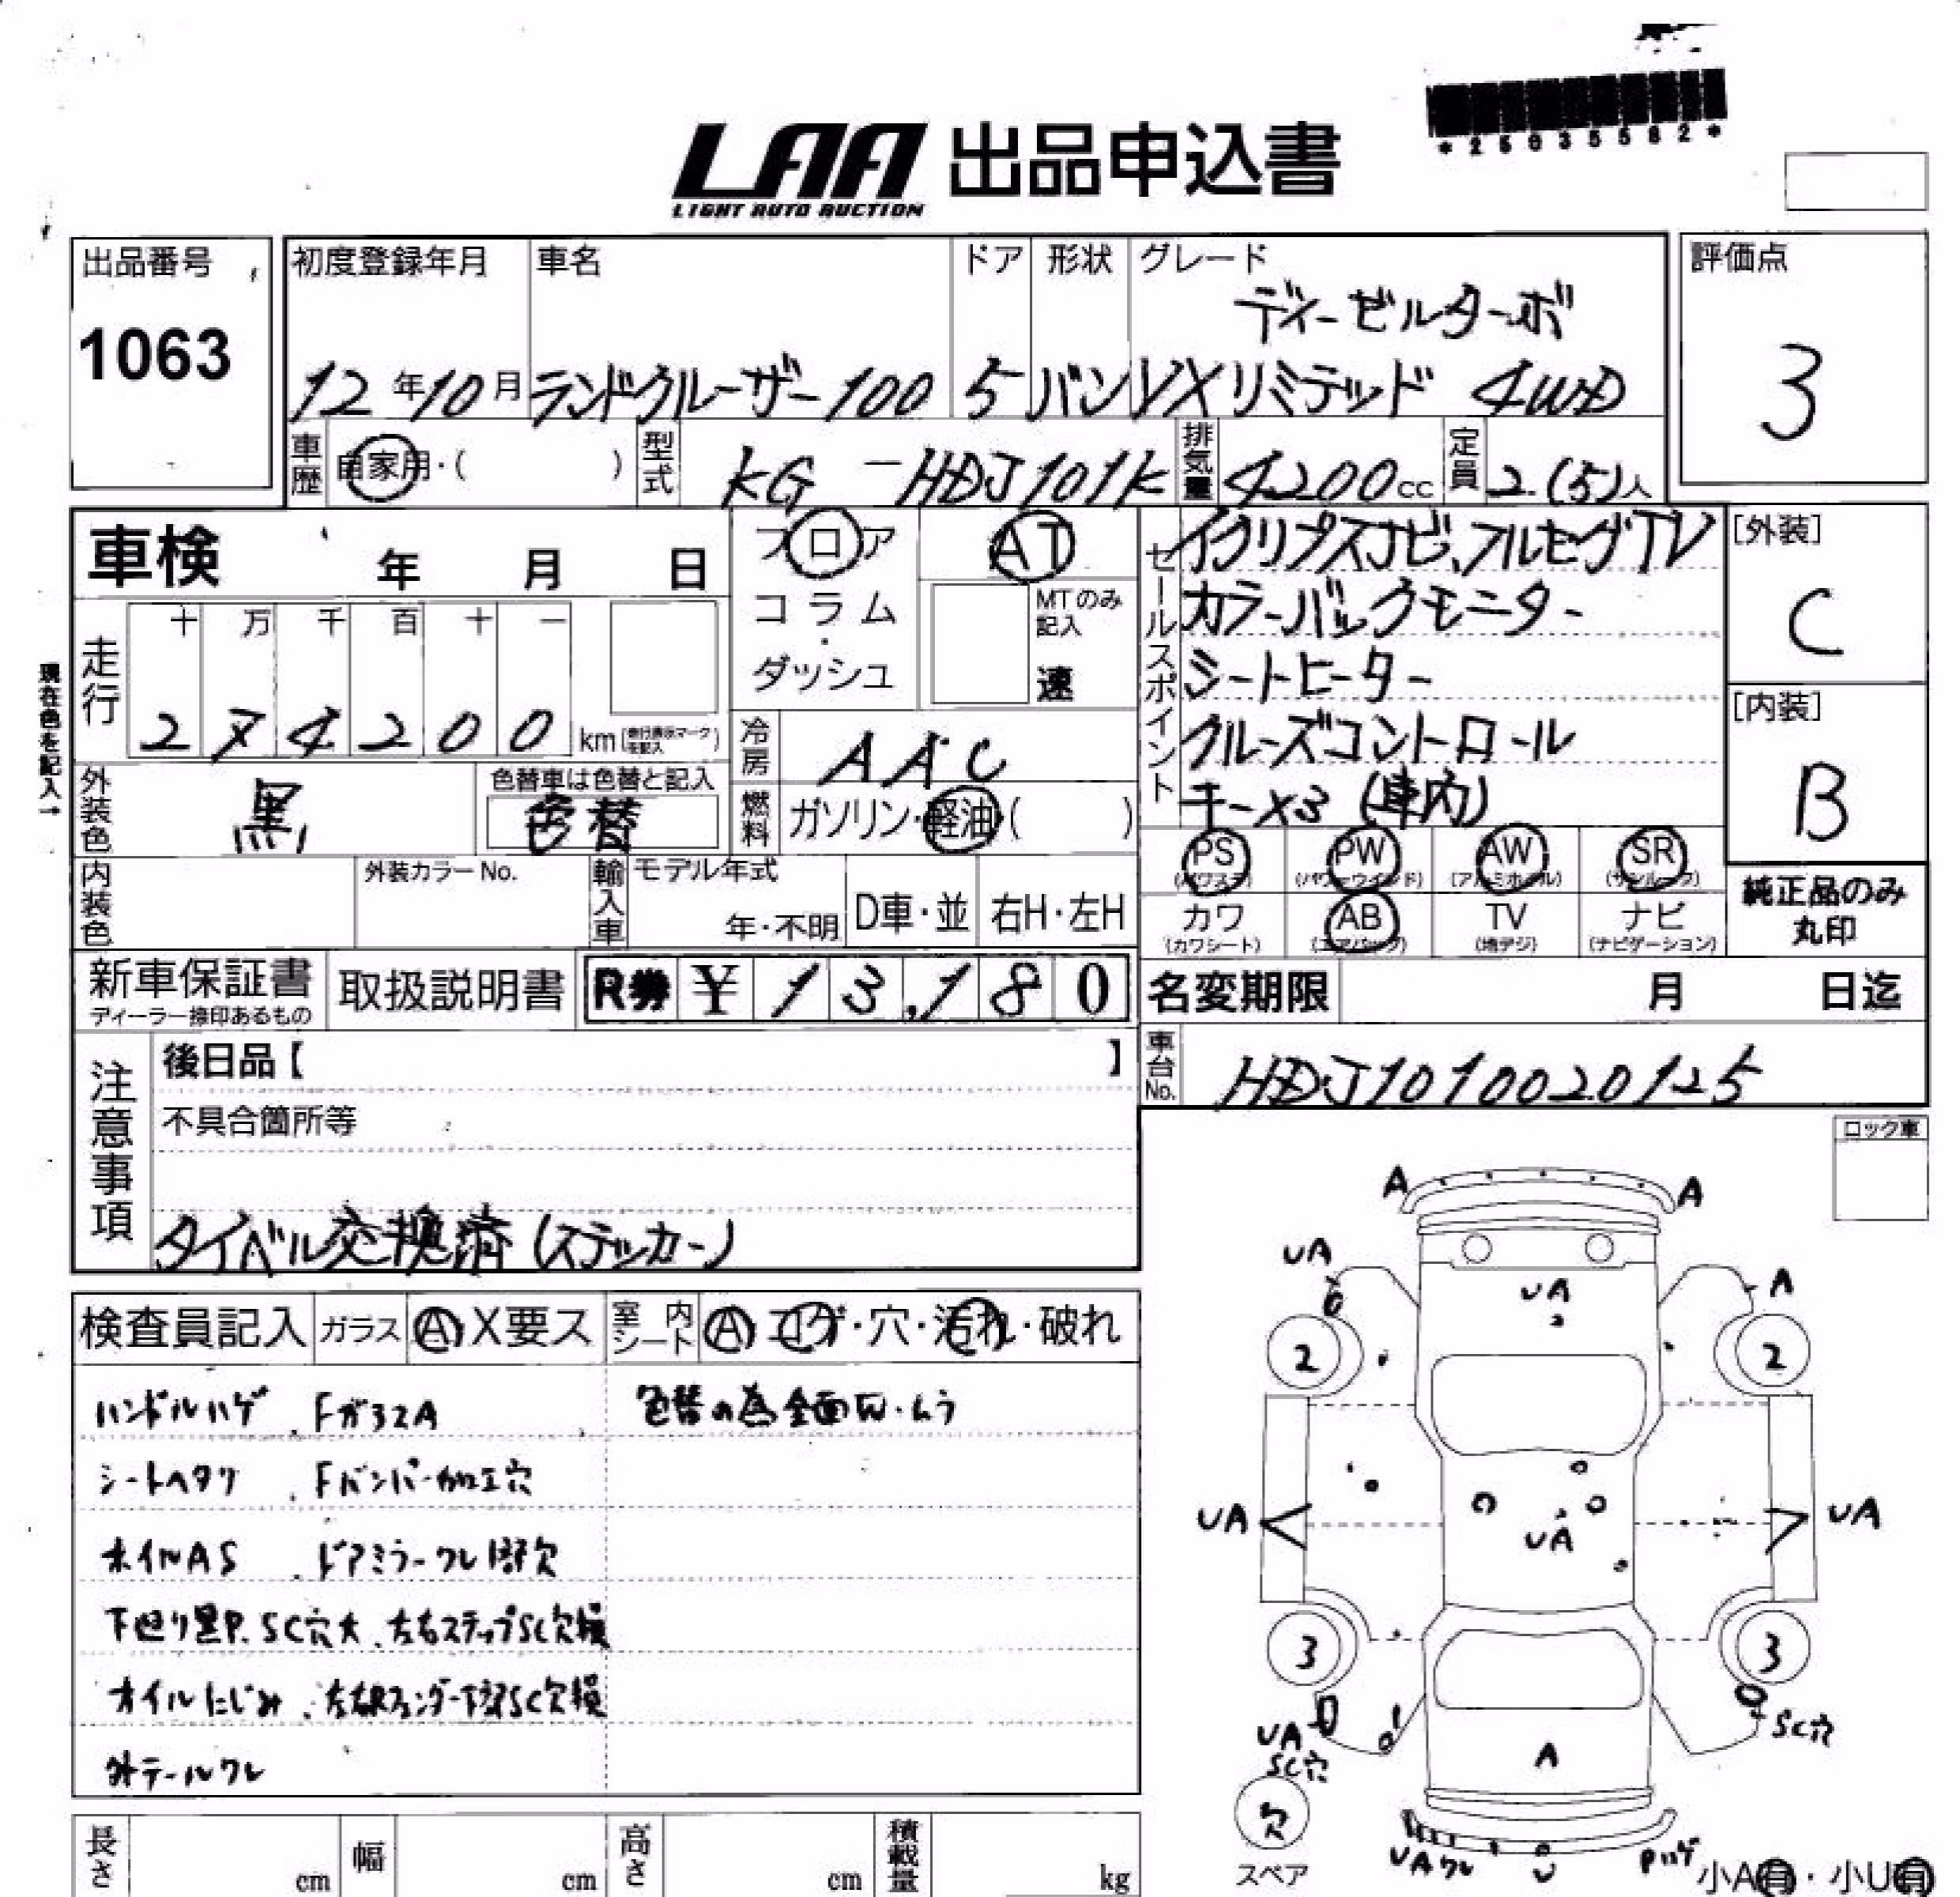 *25035582*
LAA 出品申込書
LIGHT AUTO AUCTION
出品番号
1063
初度登録年月
12年10月
車名
ランドクルーザー100
ドア
5
形状
バン
グレード
ディーゼルターボ
VXリミテッド 4WD
評価点
3
車歴 自家用・( )
型式 KG-HDJ101K
排気量 4200cc
定員 2(5)人
車検 年 月 日
フロア
コラム・
ダッシュ
AT
MTのみ
記入
速
現在色を記入→
走行
十 万 千 百 十 一
2 7 4 2 0 0 km(走行表示マークを記入)
外装色 黒
色替車は色替と記入
色替
冷房 AAC
燃料 ガソリン・軽油( )
セールスポイント
イクリプスナビ、フルセグTV
カラーバックモニター
シートヒーター
クルーズコントロール
キーx3 (車内)
[外装]
C
[内装]
B
PS PW AW SR
(パワステ) (パワーウインド) (アルミホイル) (サンルーフ)
カワ AB TV ナビ
(カワシート) (エアバッグ) (地デジ) (ナビゲーション)
純正品のみ
丸印
内装色
外装カラーNo.
輸入車
モデル年式
年・不明
D車・並
右H・左H
新車保証書
ディーラー捺印あるもの
取扱説明書
R券 ¥13,180
名変期限 月 日迄
車台No. HDJ1010020125
注意事項
後日品【 】
不具合箇所等
タイベル交換済(ステッカー)
ロック車
検査員記入 ガラス A X要ス 室内シート A コゲ・穴・汚れ・破れ
ハンドルハゲ . Fガラス A
色替の為全面W・ムラ
シートヘタリ . Fバンパー加工穴
ホイルAS . ドアミラーワレ1部欠
下廻り黒P.SC穴大 . 左右ステップSC欠損
オイルにじみ . 左右Rフェンダー下部SC欠損
外テールワレ
A A
UA UA A
2 2
UA UA UA
3 3
UA SC穴
SC穴 A
欠
スペア
UAワレ U Pハゲ
小A有・小U有
長さ cm 幅 cm 高さ cm 積載量 kg